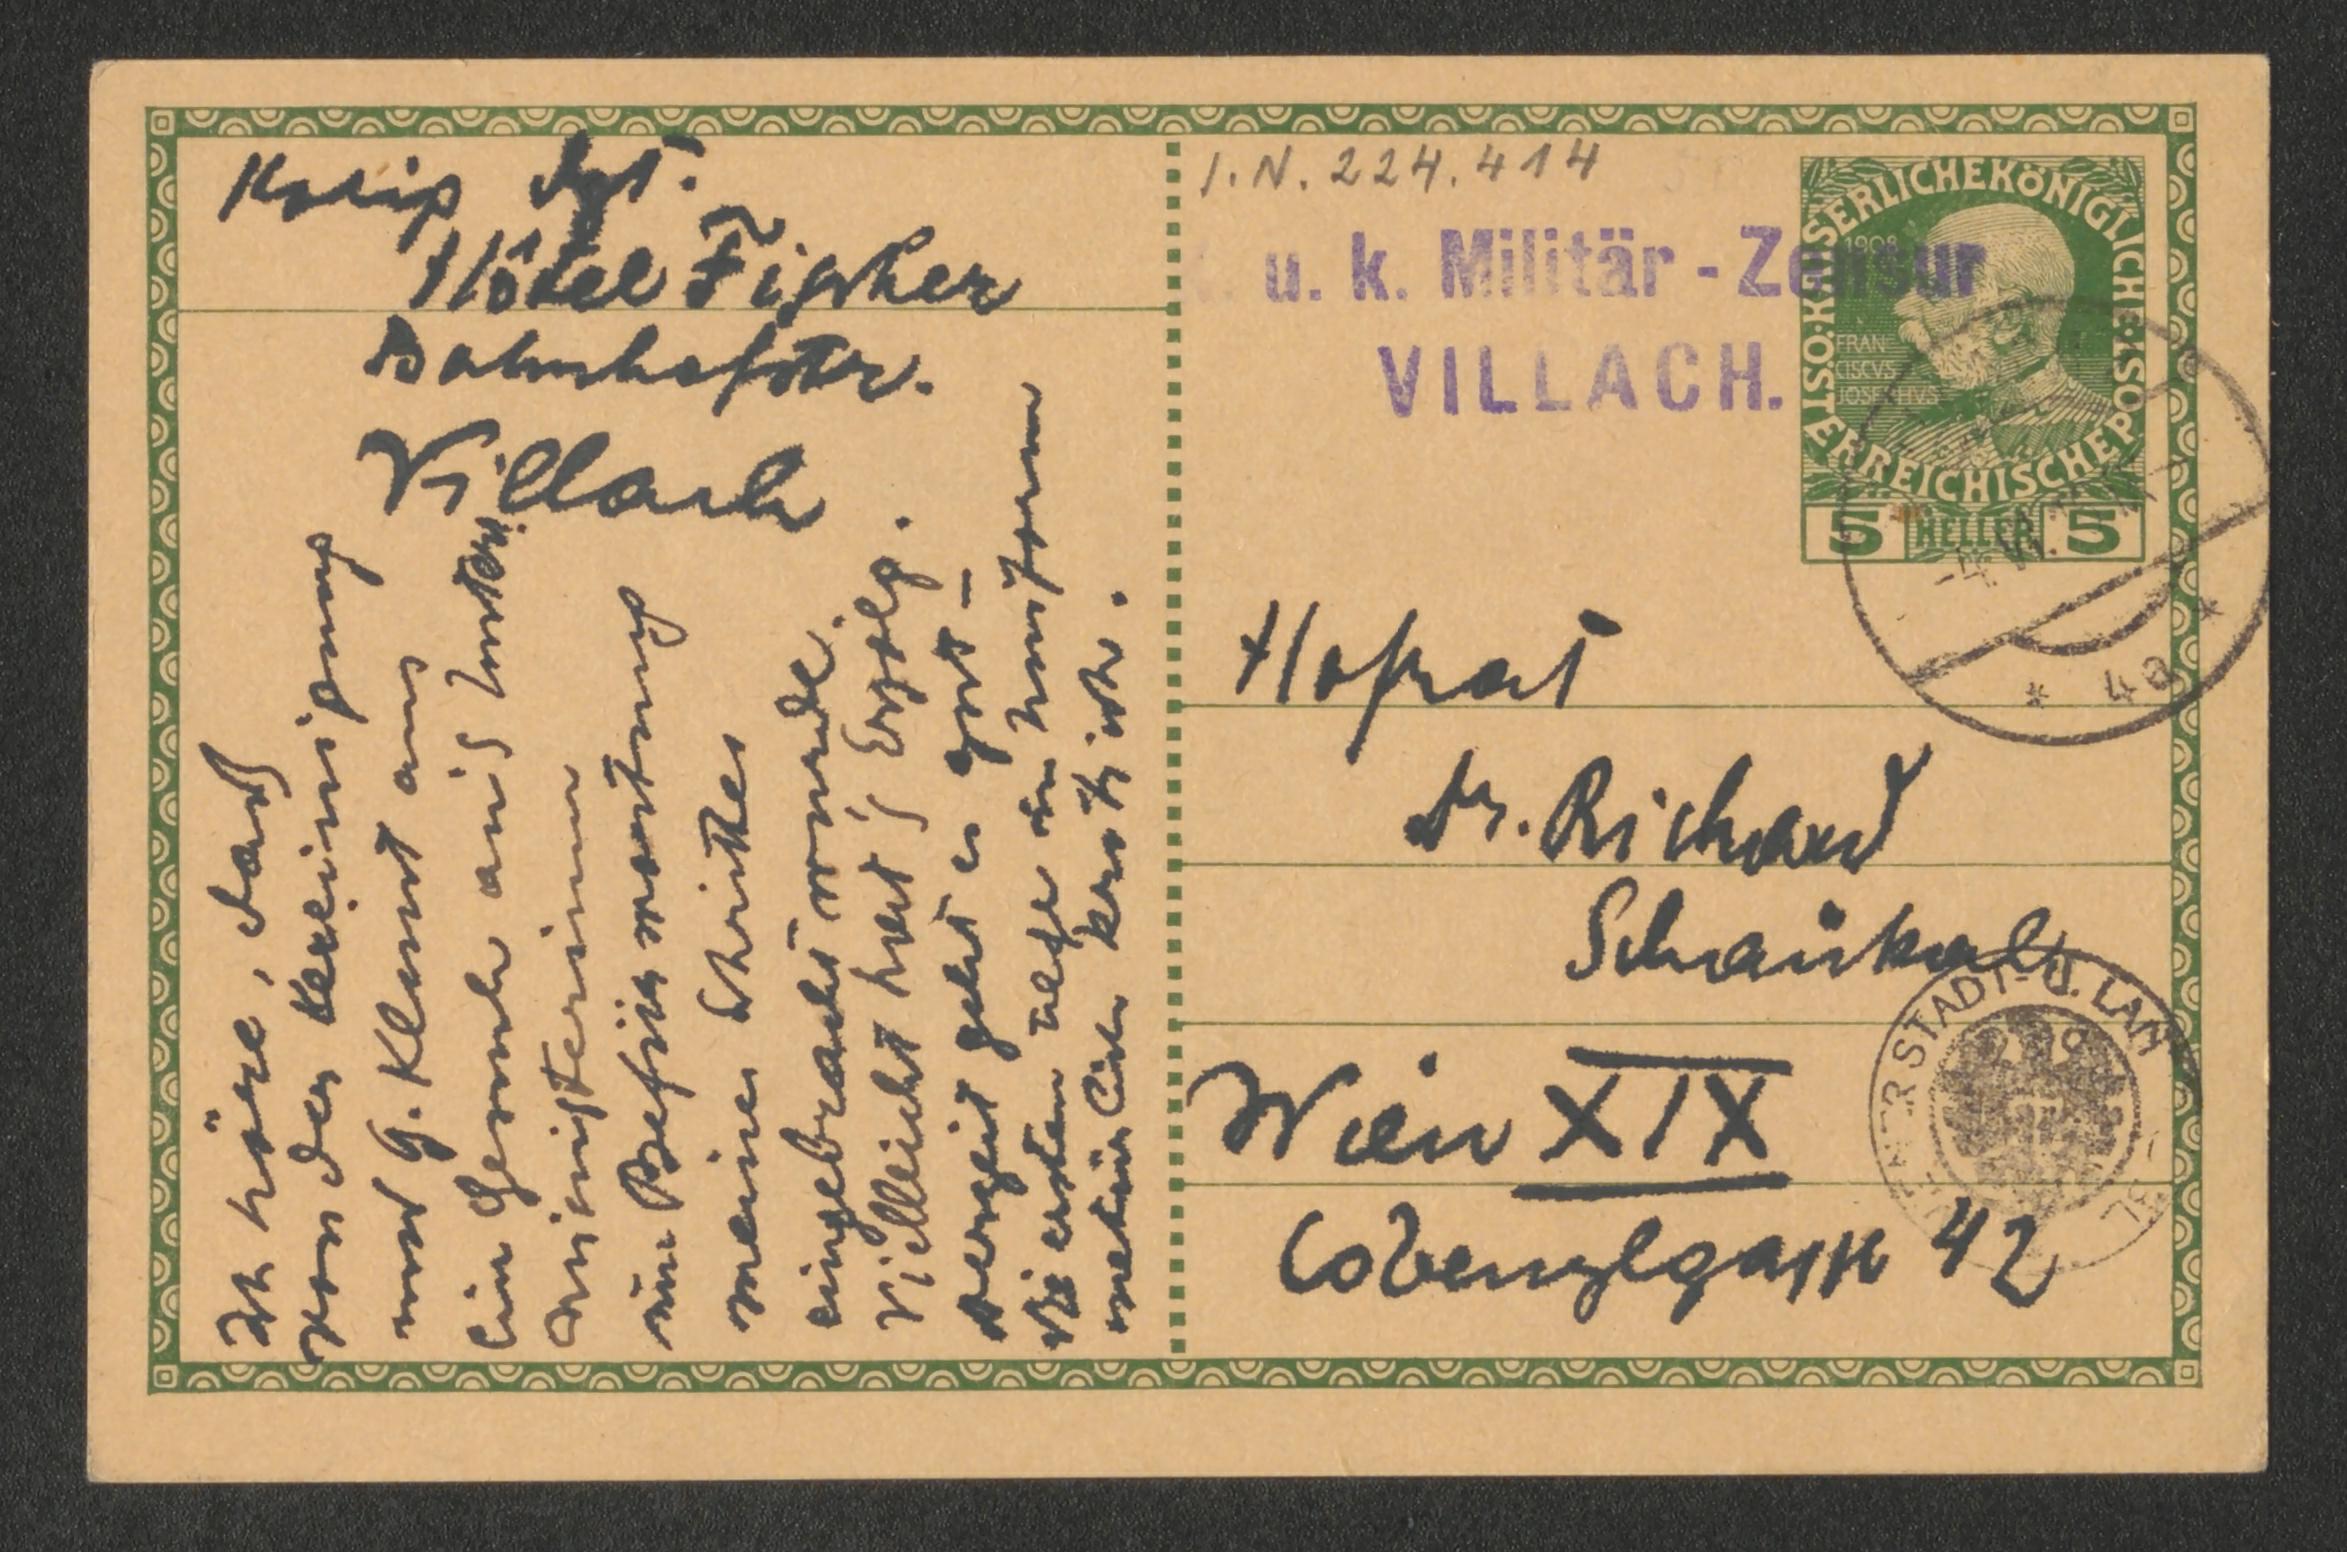 Kolig Lgt.
Hôtel Fischer
Bahnhofstr.
Villach
Ich höre, dass
von der Vereinigung
und G. Klimt aus
ein Gesuch ans Unter
ministerium
um Befürwortung
meines Schrittes
eingebracht wurde.
Vielleicht hat's Erfolg.
derzeit geht es gut –
Die ersten in Uniform
I.N. 224.414
u. k. Militär-Zensur
VILLACH.
KAISERLICHEKÖNIGLICHE ÖSTERREICHISCHE POST
1908
FRAN
CISCVS
JOSEPHVS
5 HELLER 5
4a
Hofrat
Dr. Richard
Schaukal
Wien XIX
Cobenzlgasse 42
WIENER STADT- U. LAN